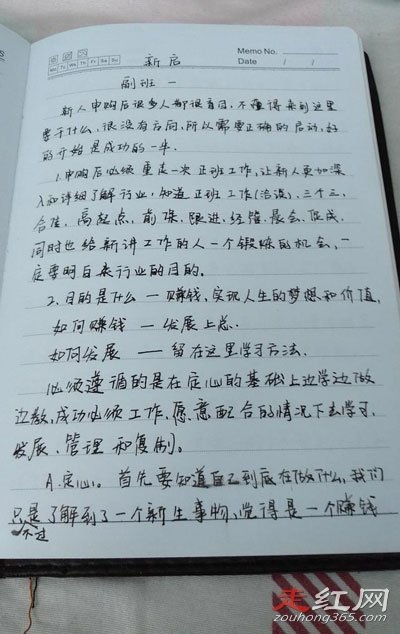 Memo No.
Mo Tu We Th Fr Sa Su
Date / /
新启
副班一
新人申购后很多人都很盲目,不懂得来到这里
要干什么,很没有方向,所以需要正确的启动,好
的开始是成功的一半
1.申购后必须重走一次正班工作,让新人更加深
入和详细了解行业,知道正班工作(洽谈),三个三,
合佳,高起点,前殊,跟进,经管,晨会,促成,
同时也给新讲工作的人一个锻炼的机会,一
定要明白来行业的目的。
2.目的是什么 — 赚钱,实现人生的梦想和价值,
如何赚钱 — 发展上总.
如何发展 — 留在这里学习方法.
必须遵调的是在定心的基础上边学边做
边教,成功必须工作、愿意配合的情况下去学习、
发展、管理和复制。
A.定心。首先要知道自己到底在做什么,我们
只是了解到了一个新生事物,觉得是一个赚钱
不过
走红网
zouhong365.com